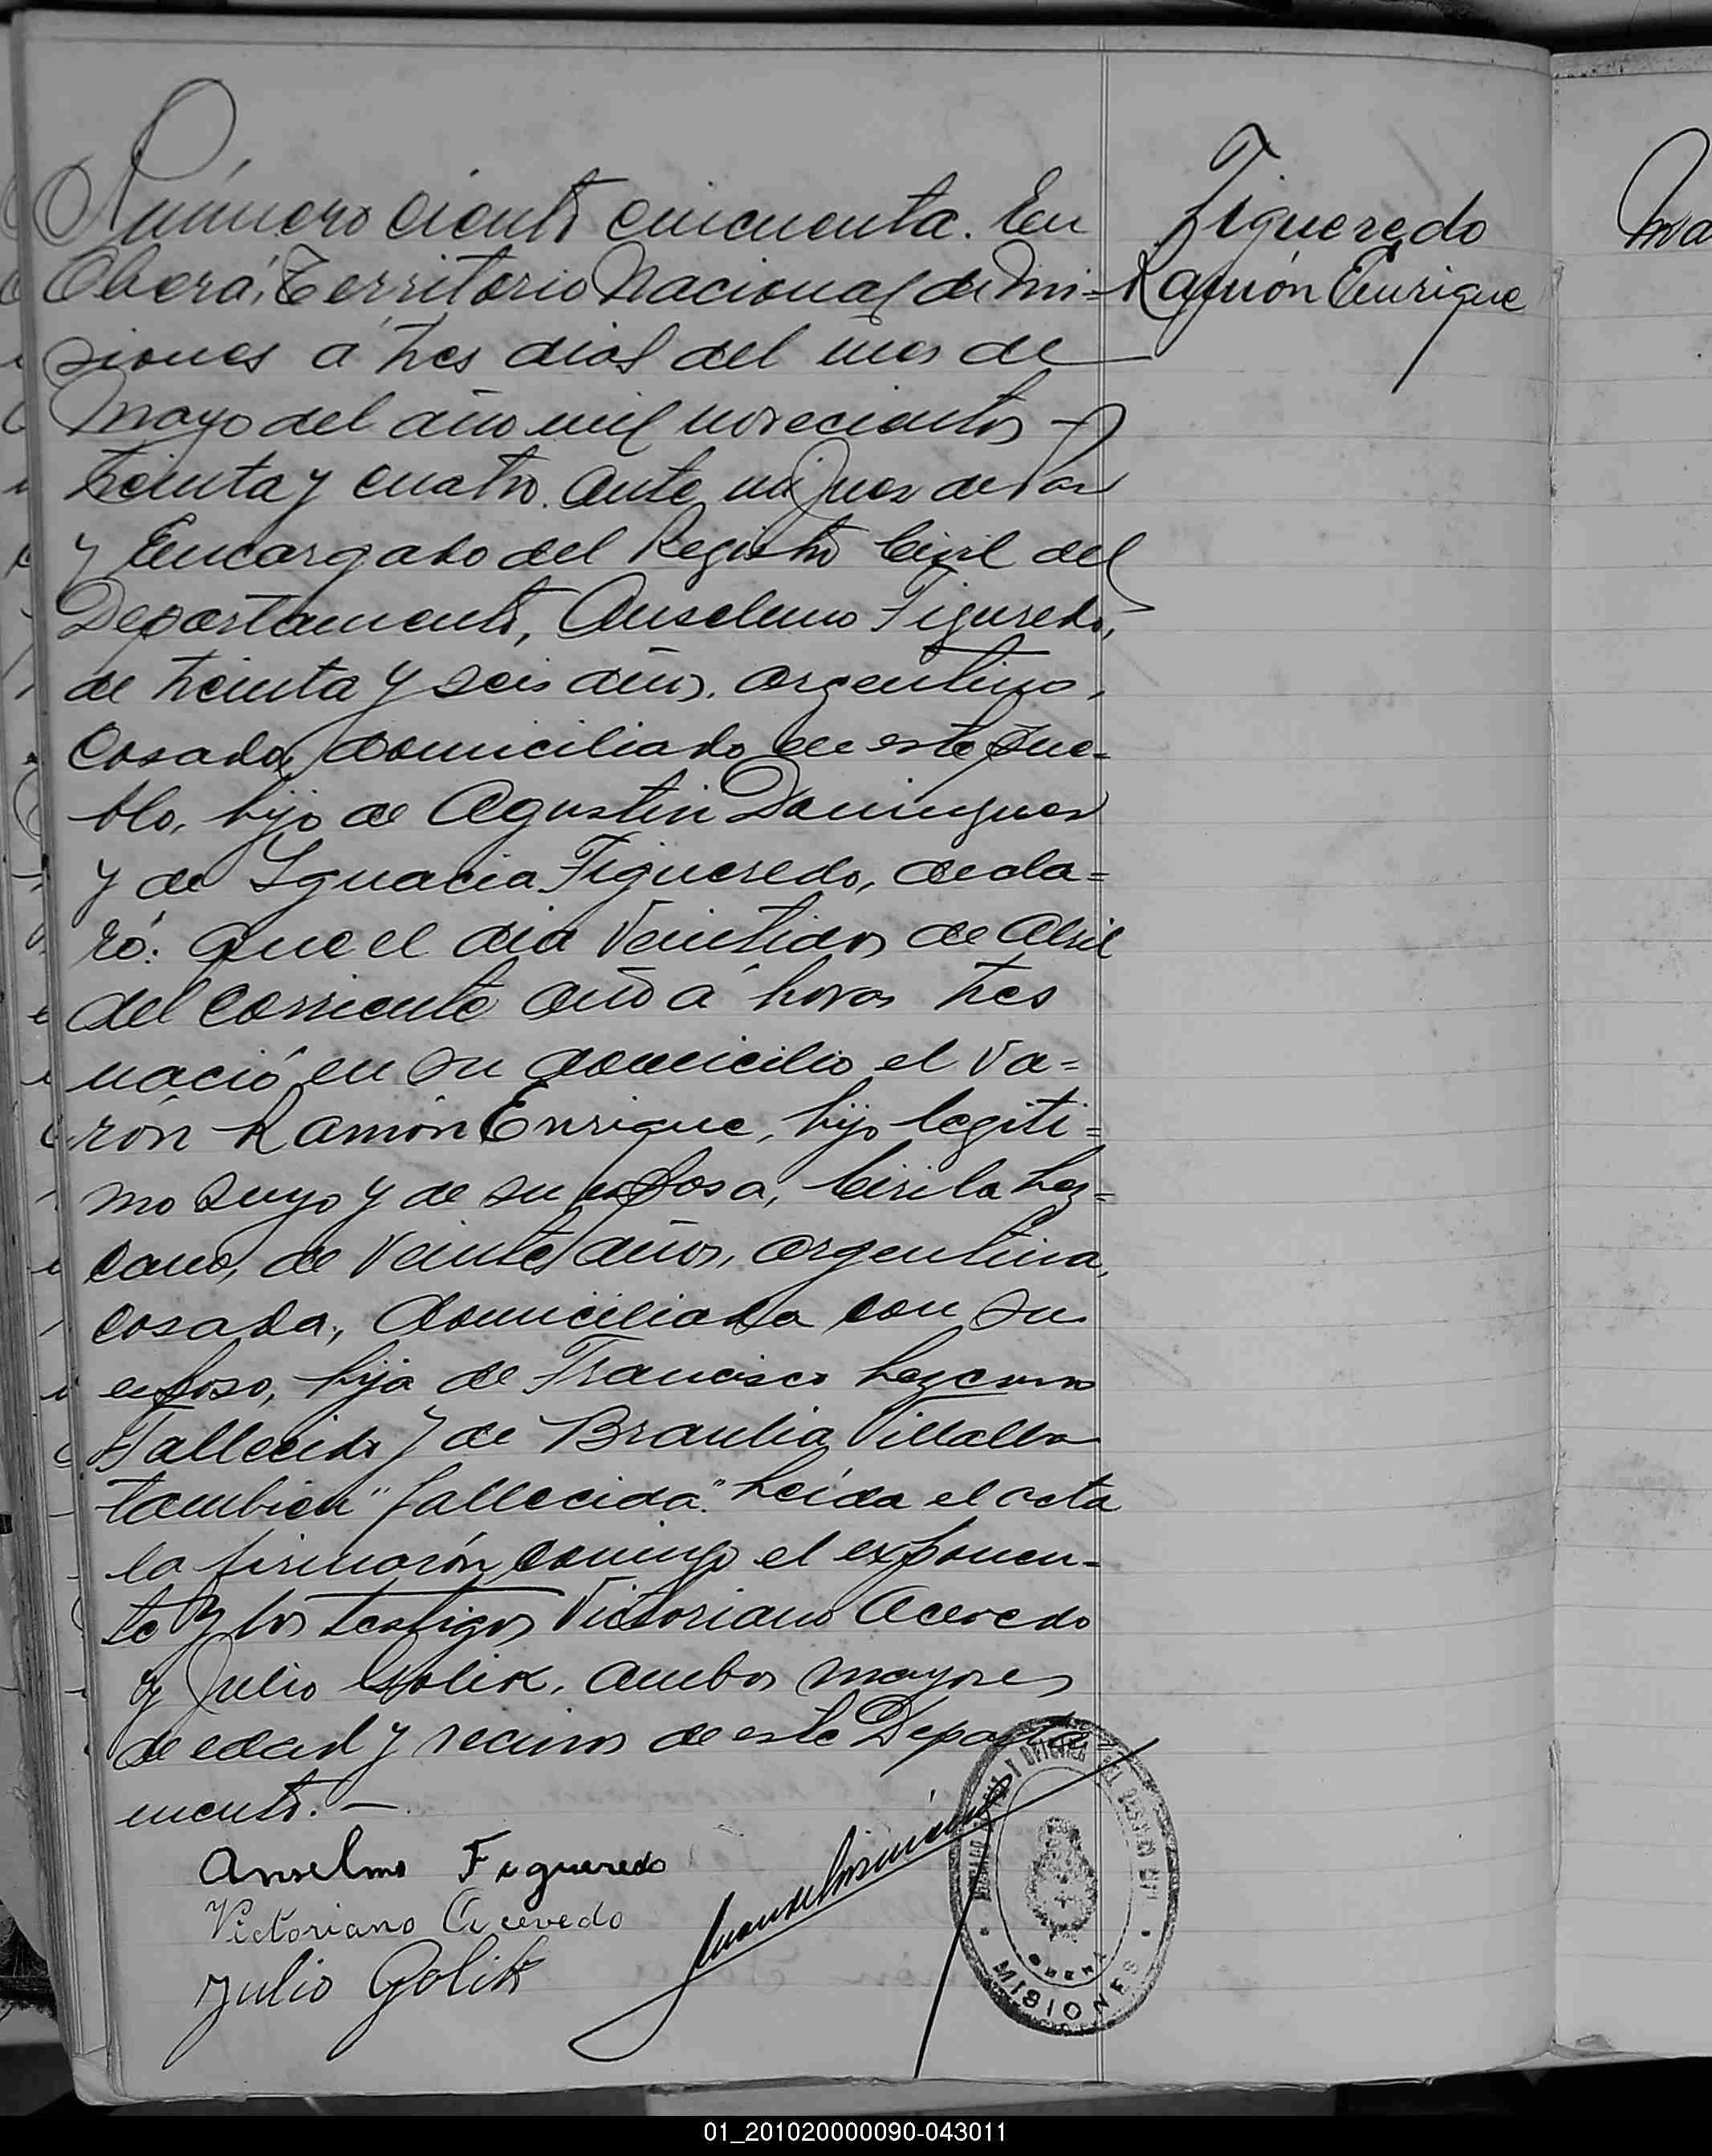 Número ciento cincuenta. En
Oberá, Territorio Nacional de Mi=
siones a tres dias del mes de
Mayo del año mil novecientos
treinta y cuatro. Ante mi Juez de Paz
y Encargado del Registro Civil del
Departamento, Anselmo Figueredo,
de treinta y seis años, argentino,
casado, domiciliado en este pue=
blo, hijo de Agustin Dominguez
y de Ignacia Figueredo, decla=
ró: Que el dia Veintidos de Abril
del corriente año á horas tres
nació en su domicilio el va=
rón Ramón Enrique, hijo legiti=
mo suyo y de su esposa, Cirila Lez=
cano, de veinte años, argentina,
casada, domiciliada con su
esposo, hija de Francisco Lezcano
Fallecido y de Braulia Villalba
tambien "fallecida". Leída el acta
la firmarón conmigo el exponen=
te y los testigos Victoriano Acevedo
y Julio Golik, ambos mayores
de edad y vecinos de este Departa=
mento. —
Anselmo Figueredo
Victoriano Acevedo
Julio Golik
Figueredo
Ramón Enrique
OBERÁ
MISIONES
01_201020000090-043011